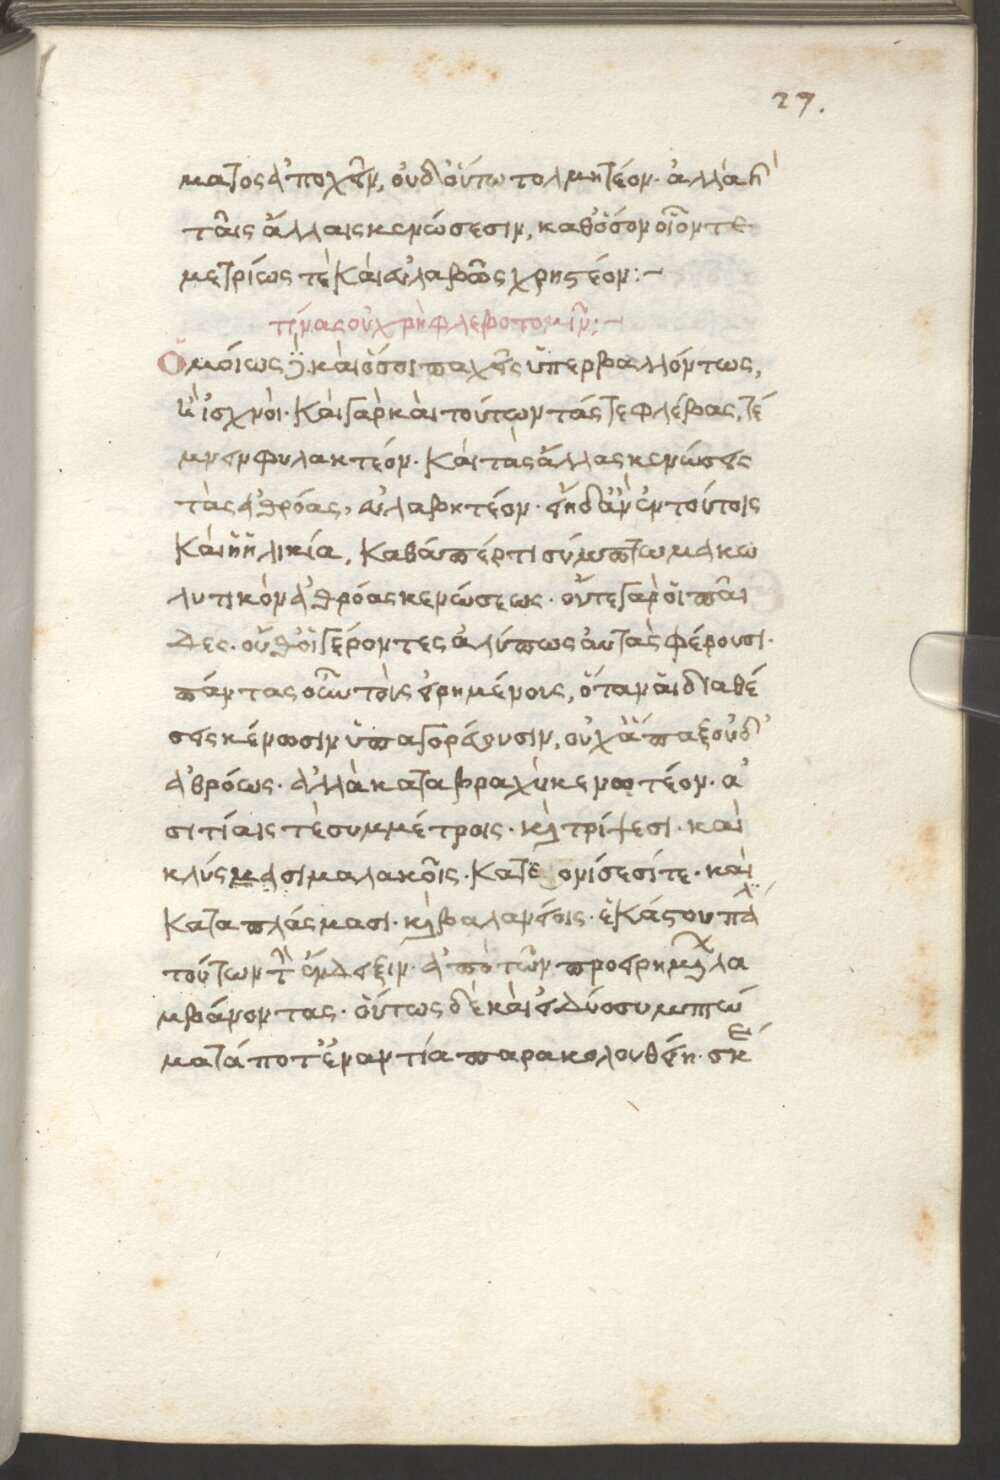 27.
ματος ἀποχεῖν, οὐδ' οὕτω τολμητέον· ἀλλὰ κ
ταῖς ἄλλαις κενώσεσιν, καθόσον οἷόν τε
μετρίως τὲ καὶ εὐλαβῶς χρηστέον:~
τίνας οὐ χρὴ φλεβοτομεῖν:~
Ὁμοίως δὲ καὶ ὅσοι παχεῖς ὑπερβαλλόντως,
ἢ ἰσχνοί· καὶ γὰρ καὶ τούτων τάς τε φλέβας, τέ
μνειν φυλακτέον· καὶ τὰς ἄλλας κενώσεις
τὰς ἀθρόας, εὐλαβητέον· εἴη δ' ἂν ἐν τούτοις
καὶ ἡ ἡλικία, καθάπερ τι σύμπτωμα κω
λυτικὸν ἀθρόας κενώσεως· οὔτε γὰρ οἱ παῖ
δες· οὔθ' οἱ γέροντες ἀλύπως αὐτὰς φέρουσι·
πάντας οὖν τοὺς εἰρημένους, ὅταν αἱ διαθέ
σεις κένωσιν ὑπαγορεύουσιν, οὐχ ἅπαξ οὐδ'
ἀθρόως· ἀλλὰ κατὰ βραχὺ κενωτέον· ἀ
σιτίαις τὲ συμμέτροις· καὶ τρίψεσι· καὶ
κλύσμασι μαλακοῖς· κατ ονίσεσί τε· καὶ
καταπλάσμασι· καὶ βαλανείοις· ἑκάστου πάλ
τούτων τὴν ἔνδειξιν· ἀπὸ τῶν προειρημένων λα
μβάνοντας· οὕτως δὲ καὶ εἰ δύο συμπτώ
ματά ποτ' ἐναντία παρακολουθείη· σκέ